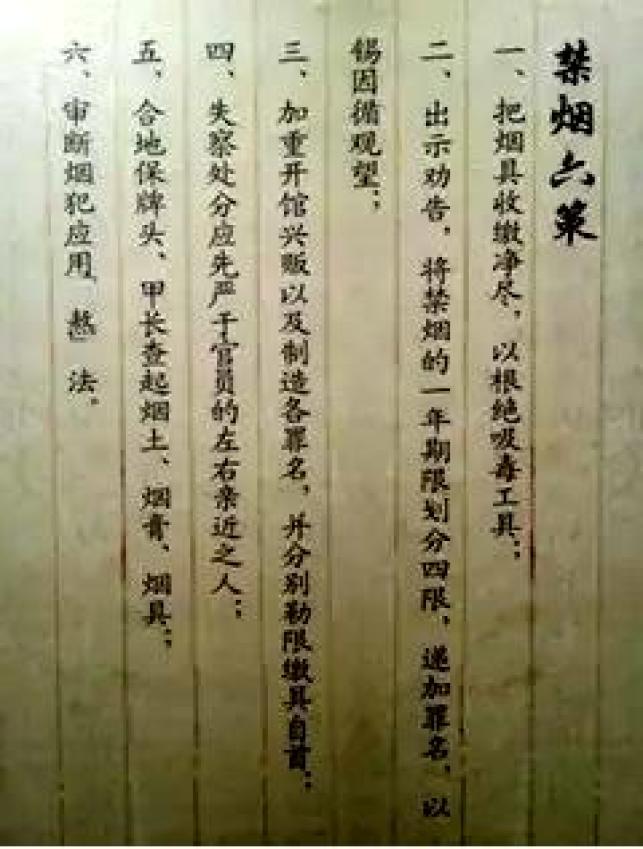 禁烟六策
一、把烟具收缴净尽，以根绝吸毒工具；
二、出示劝告，将禁烟的一年期限划分四限，递加罪名，以
惕因循观望；
三、加重开馆兴贩以及制造各罪名，并分别勒限缴具自首；
四、失察处分应先严于官员的左右亲近之人；
五、合地保牌头、甲长查起烟土、烟膏、烟具；
六、审断烟犯应用“熬”法。